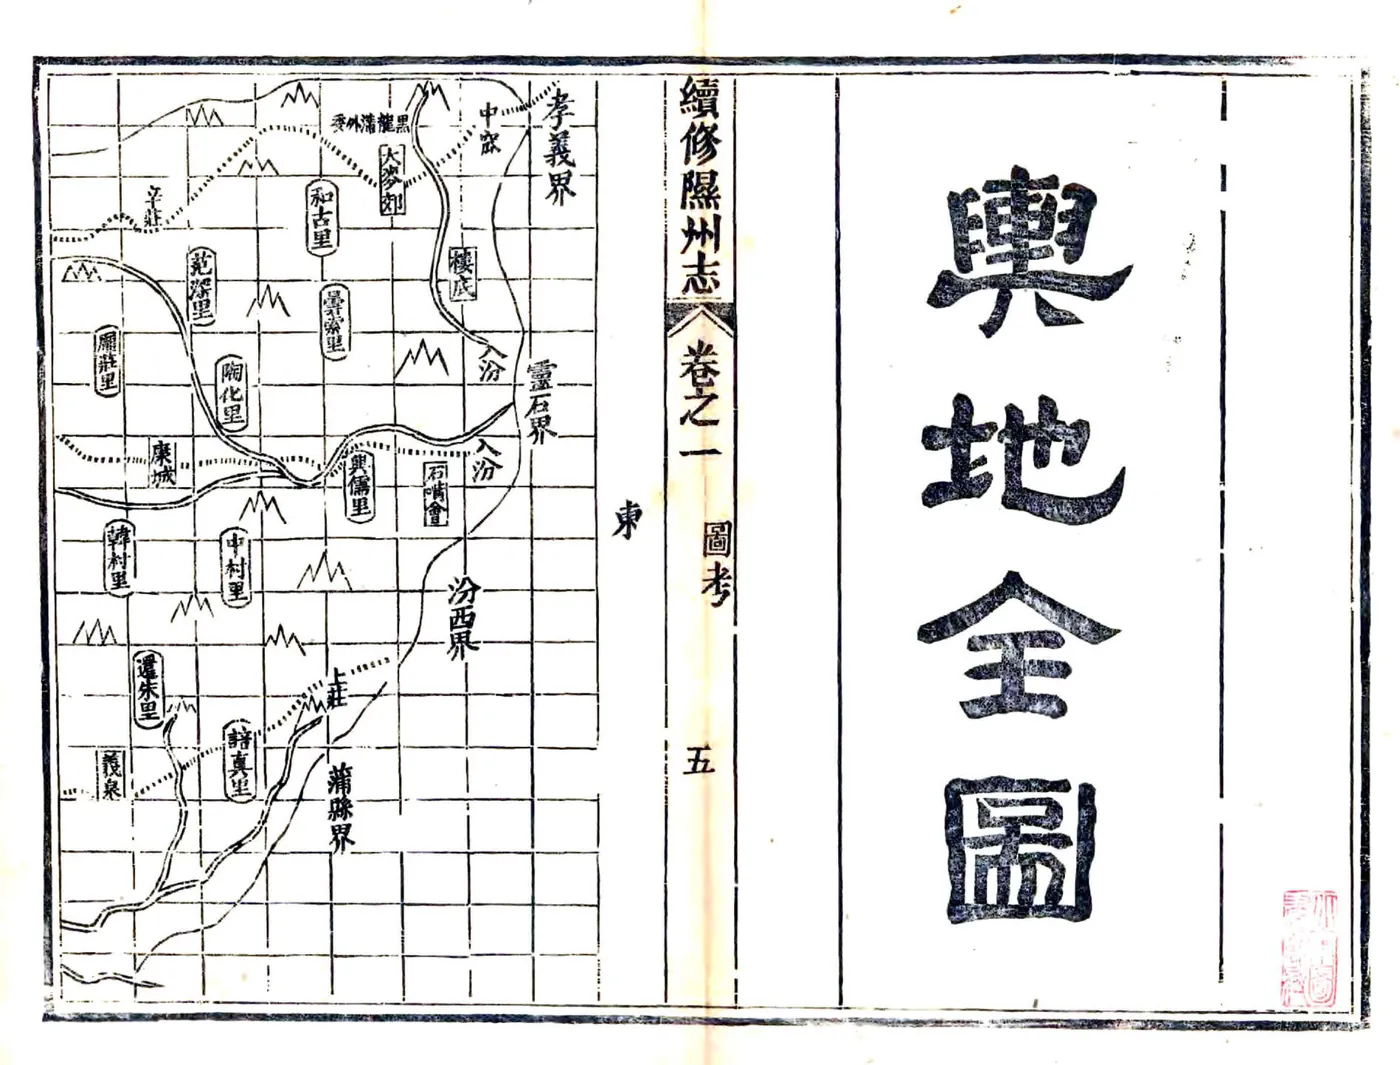 輿地全圖
續修隰州志
卷之一
圖考
五
東
孝義界
中窊
黑龍溝外委
大麥郊
和古里
辛莊
樓底
范深里
入汾
靈石界
陶化里
入汾
康城
興儒里
石嘴會
韓村里
中村里
汾西界
還朱里
上莊
義泉
蒲縣界